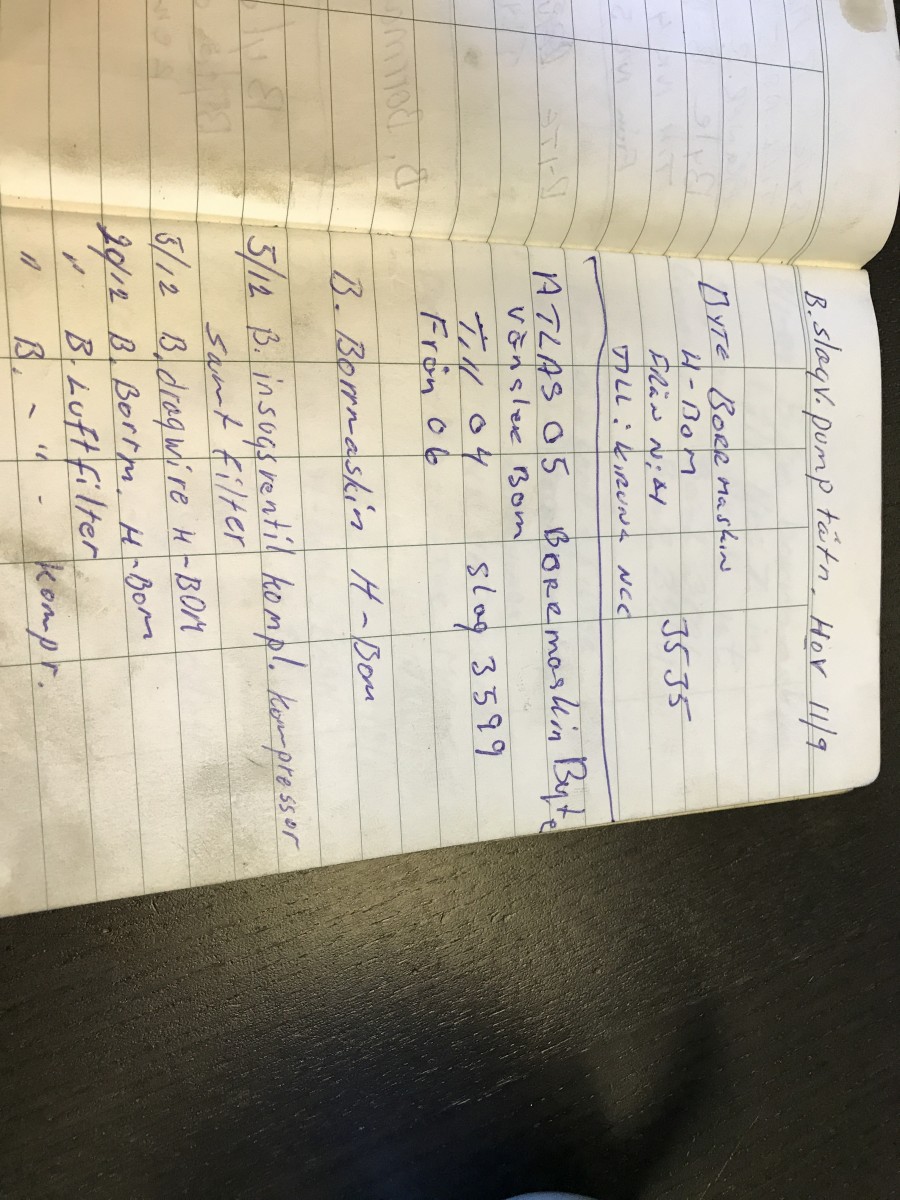 B. slagv. pump tätn. Höv 11/9
Byte Borrmaskin
H-Bom 3535
Från N:41
Till: Kiruna NCC
ATLAS 05 Borrmaskin Byte
Vänster Bom
Till 04 slag 3599
Från 06
B. Borrmaskin H-Bom
5/12 B. insugsventil kompl. kompressor
samt filter
8/12 B. dragwire H-BOM
29/12 B. Borrm. H-Bom
" B. Luftfilter
" B. - " - kompr.